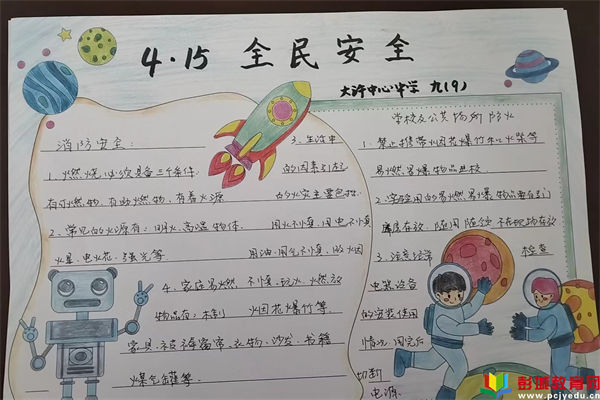 4·15 全民安全
大许中心中学 九(9)
消防安全:
1、燃烧必须具备三个条件:
有可燃物、有助燃物、有着火源
2、常见的火源有:明火、高温物体、
火星、电火花、强光等
3、生活中
的因素引起
的火灾主要包括
用火不慎、用电不慎
用油、用气不慎、吸烟
不慎、玩火、燃放
烟花爆竹等。
4、家庭易燃
物品有:木制
家具、被褥窗帘、衣物、沙发、书籍
爆仓罐等.
学校及公共场所防火
1.禁止携带烟花爆竹和火柴等
易燃易爆物品进校.
2、实验用的易燃易爆物品要专门
库房存放,随用随领,不在现场存放
3、注意经常检查
电器设备
的安装使用
情况,用完后
切断
电源.
彭城教育网
www.pcjyedu.cn